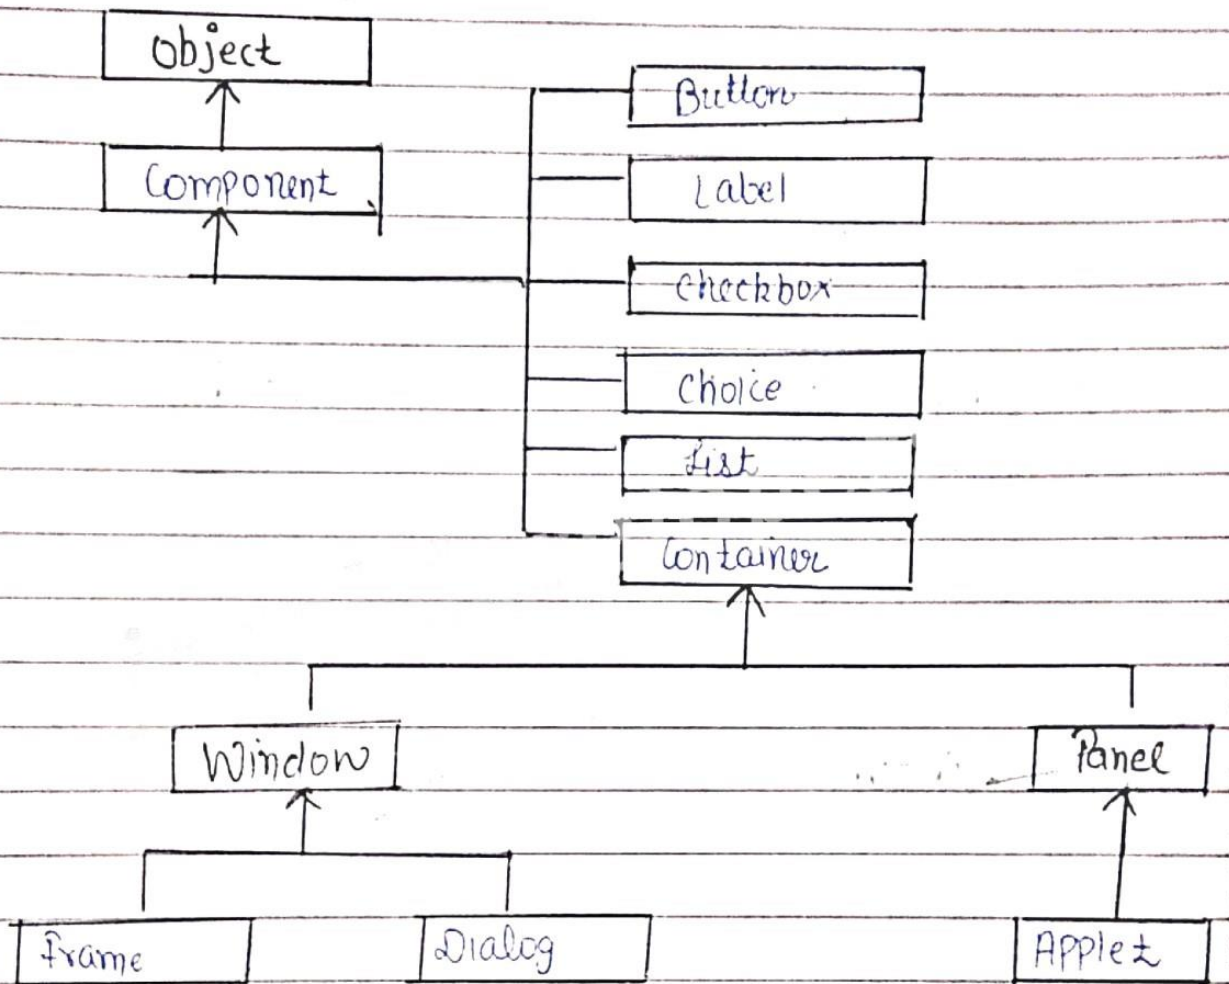 Object
Button
Component
Label
Checkbox
Choice
List
Container
Window
Panel
Frame
Dialog
Applet